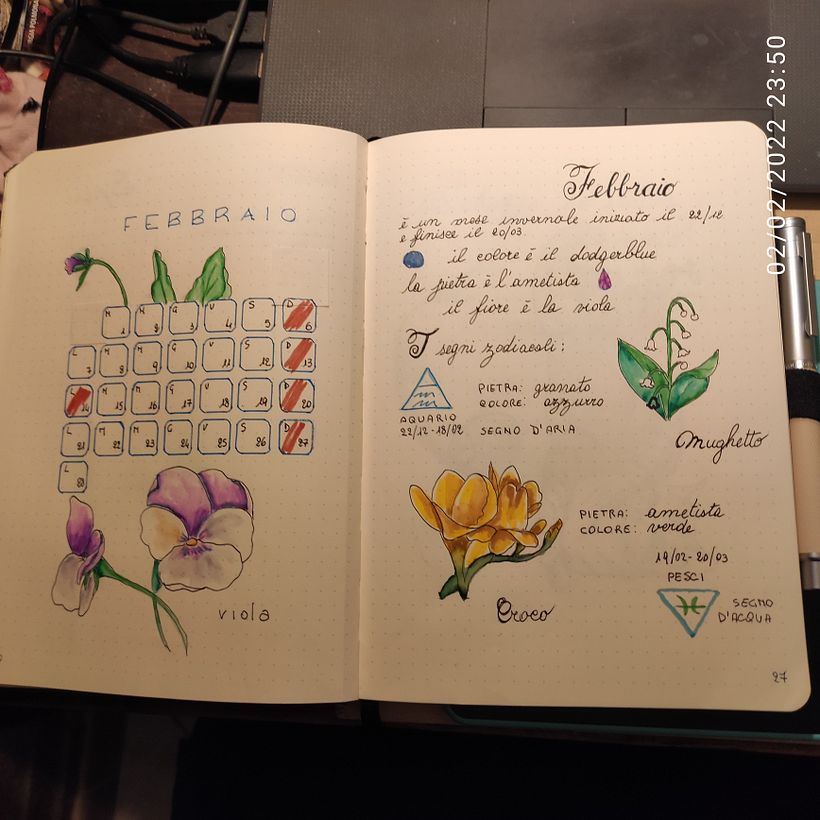 FEBBRAIO
M 1 M 2 G 3 V 4 S 5 D 6
L 7 M 8 M 9 G 10 V 11 S 12 D 13
L 14 M 15 M 16 G 17 V 18 S 19 D 20
L 21 M 22 M 23 G 24 V 25 S 26 D 27
L 28
viola
Febbraio
è un mese invernale iniziato il 22/12
e finisce il 20/03.
il colore è il dodgerblue
la pietra è l'ametista
il fiore è la viola
I segni zodiacali:
PIETRA: granato
COLORE: azzurro
AQUARIO
22/12-18/02 SEGNO D'ARIA
Mughetto
PIETRA: ametista
COLORE: verde
19/02-20/03
PESCI
SEGNO
D'ACQUA
Croco
27
02/02/2022 23:50